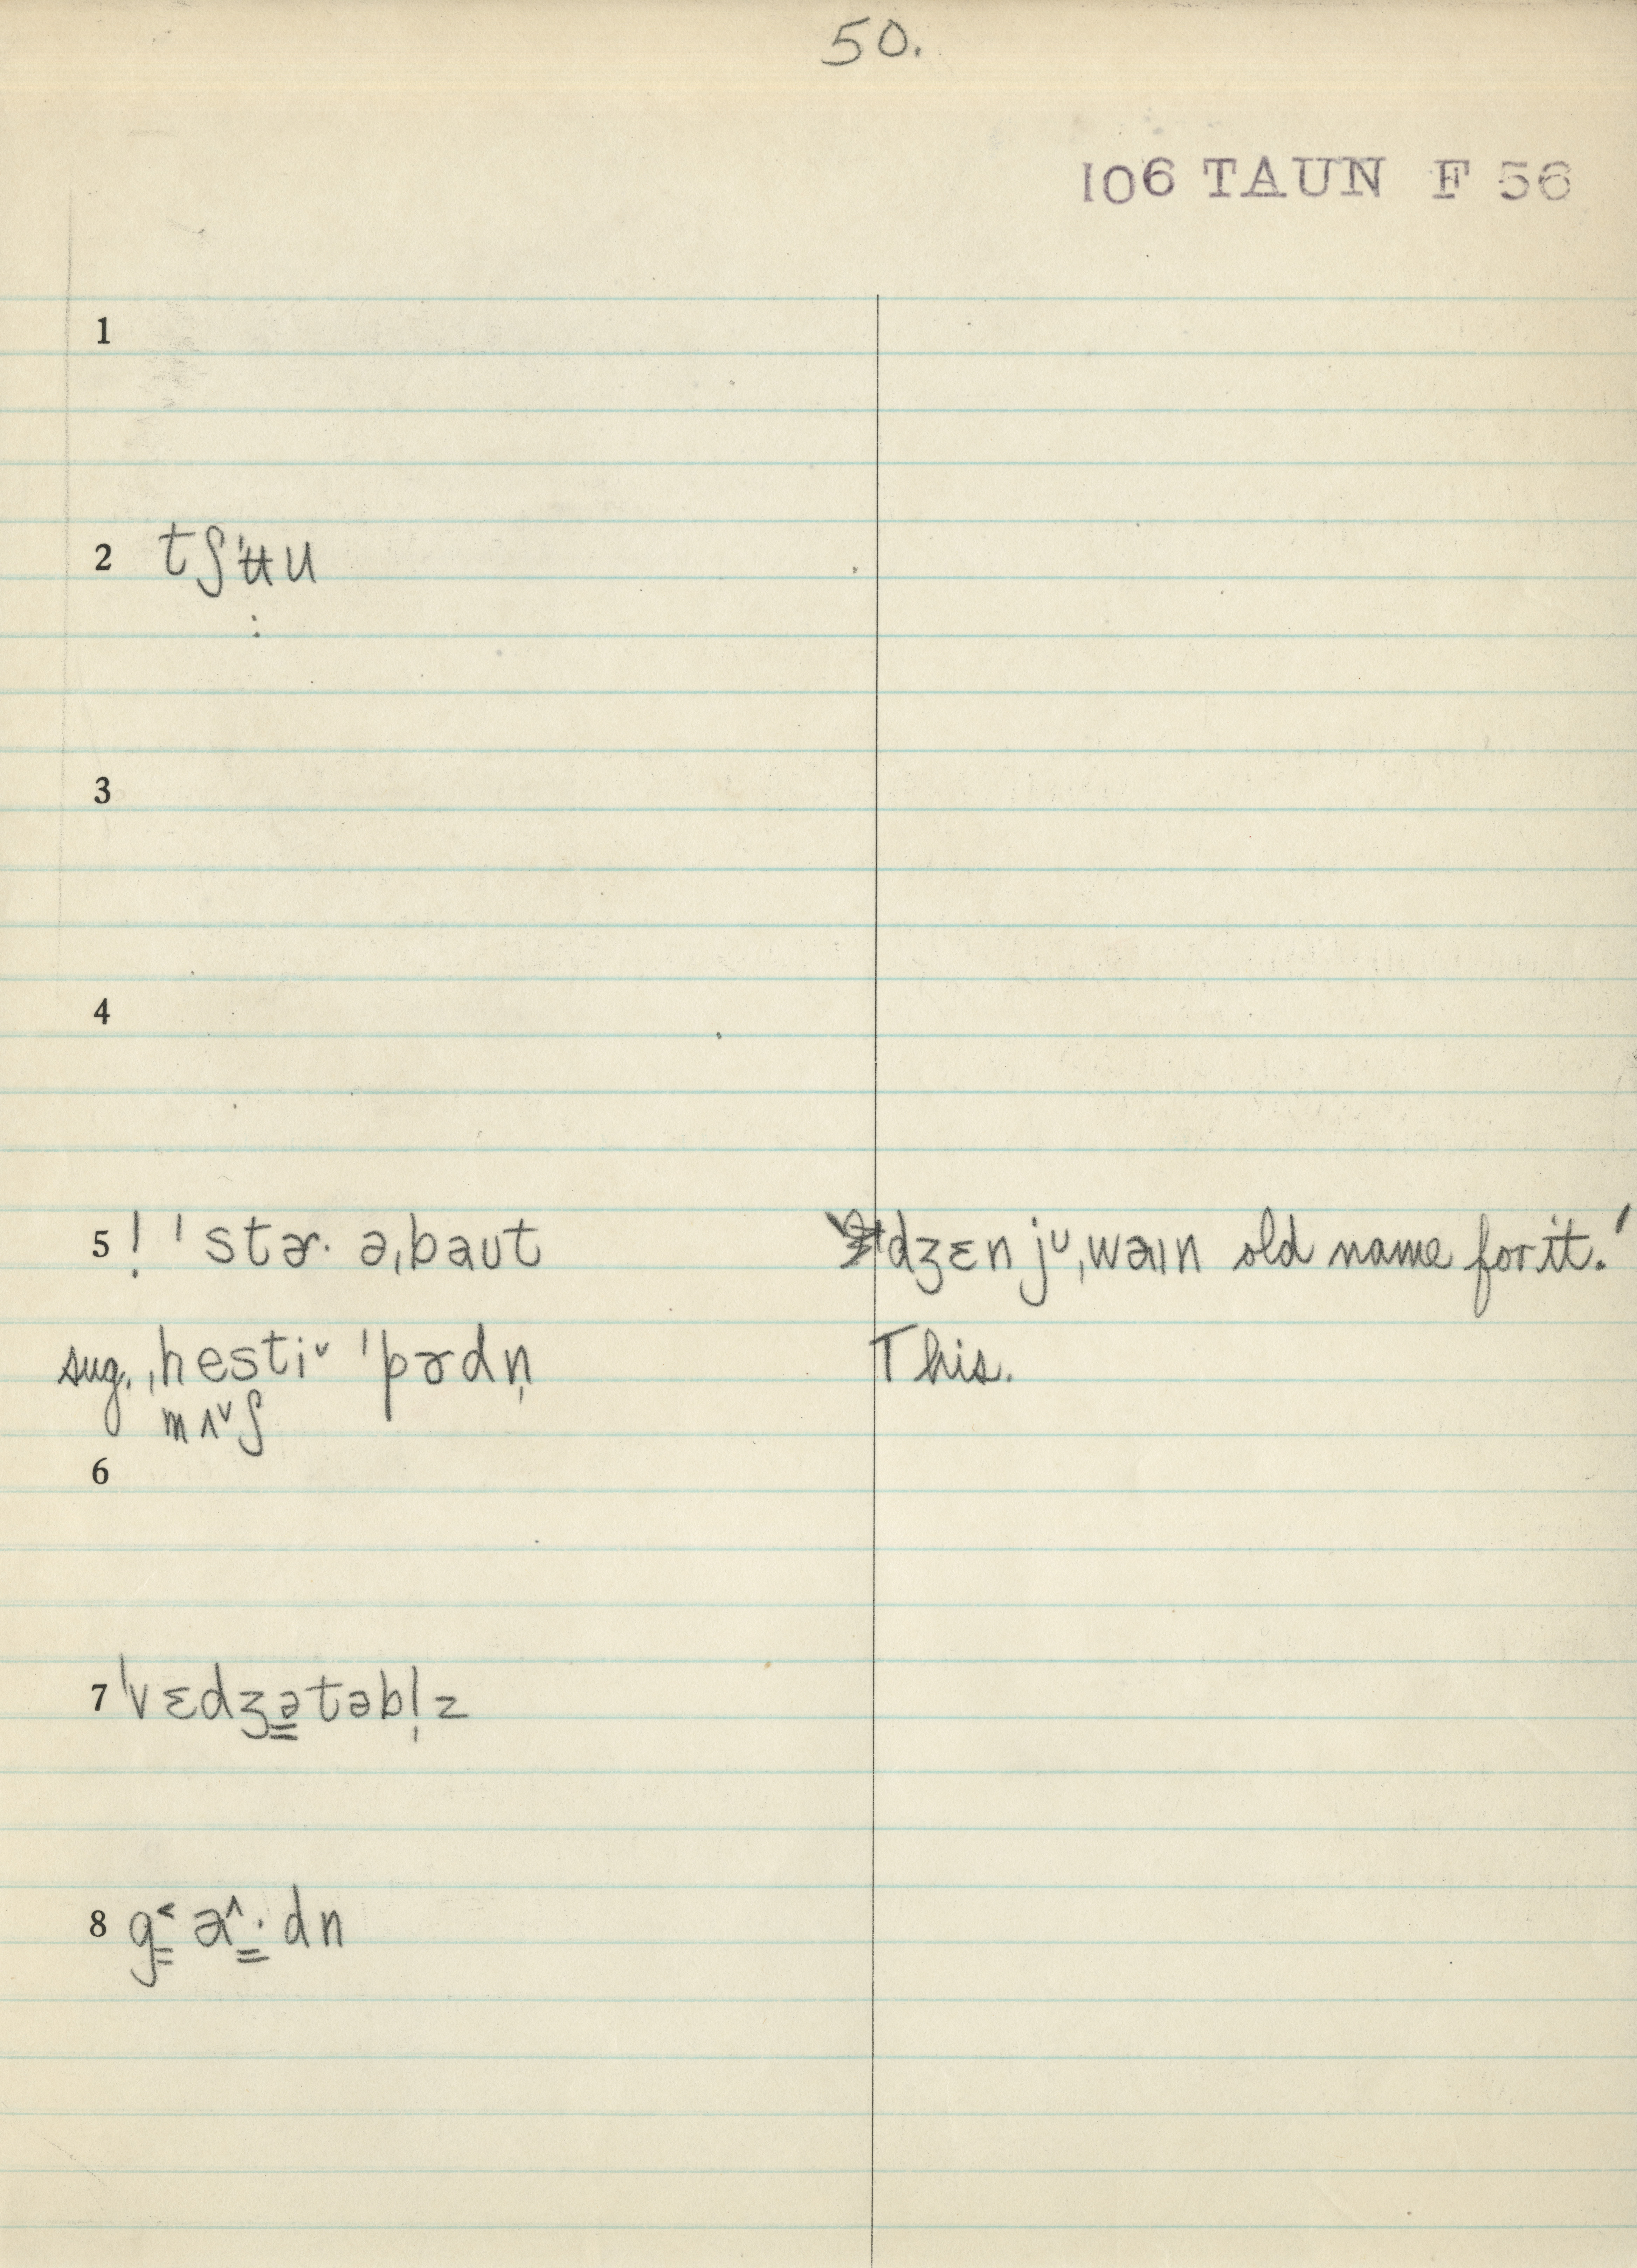 50.
106 TAUN F 56
1
2 tʃ'ʉu
:
3
4
5 ! ˈstɚ· əˌbaut
dʒɛn jᴜˌwaɪn old name for it.'
sug. ˌhestiˇ ˈpɚdn̩
This.
mʌˇʃ
6
7 ˈvɛdʒətəbl̩z
8 g˂ɑ^·dn